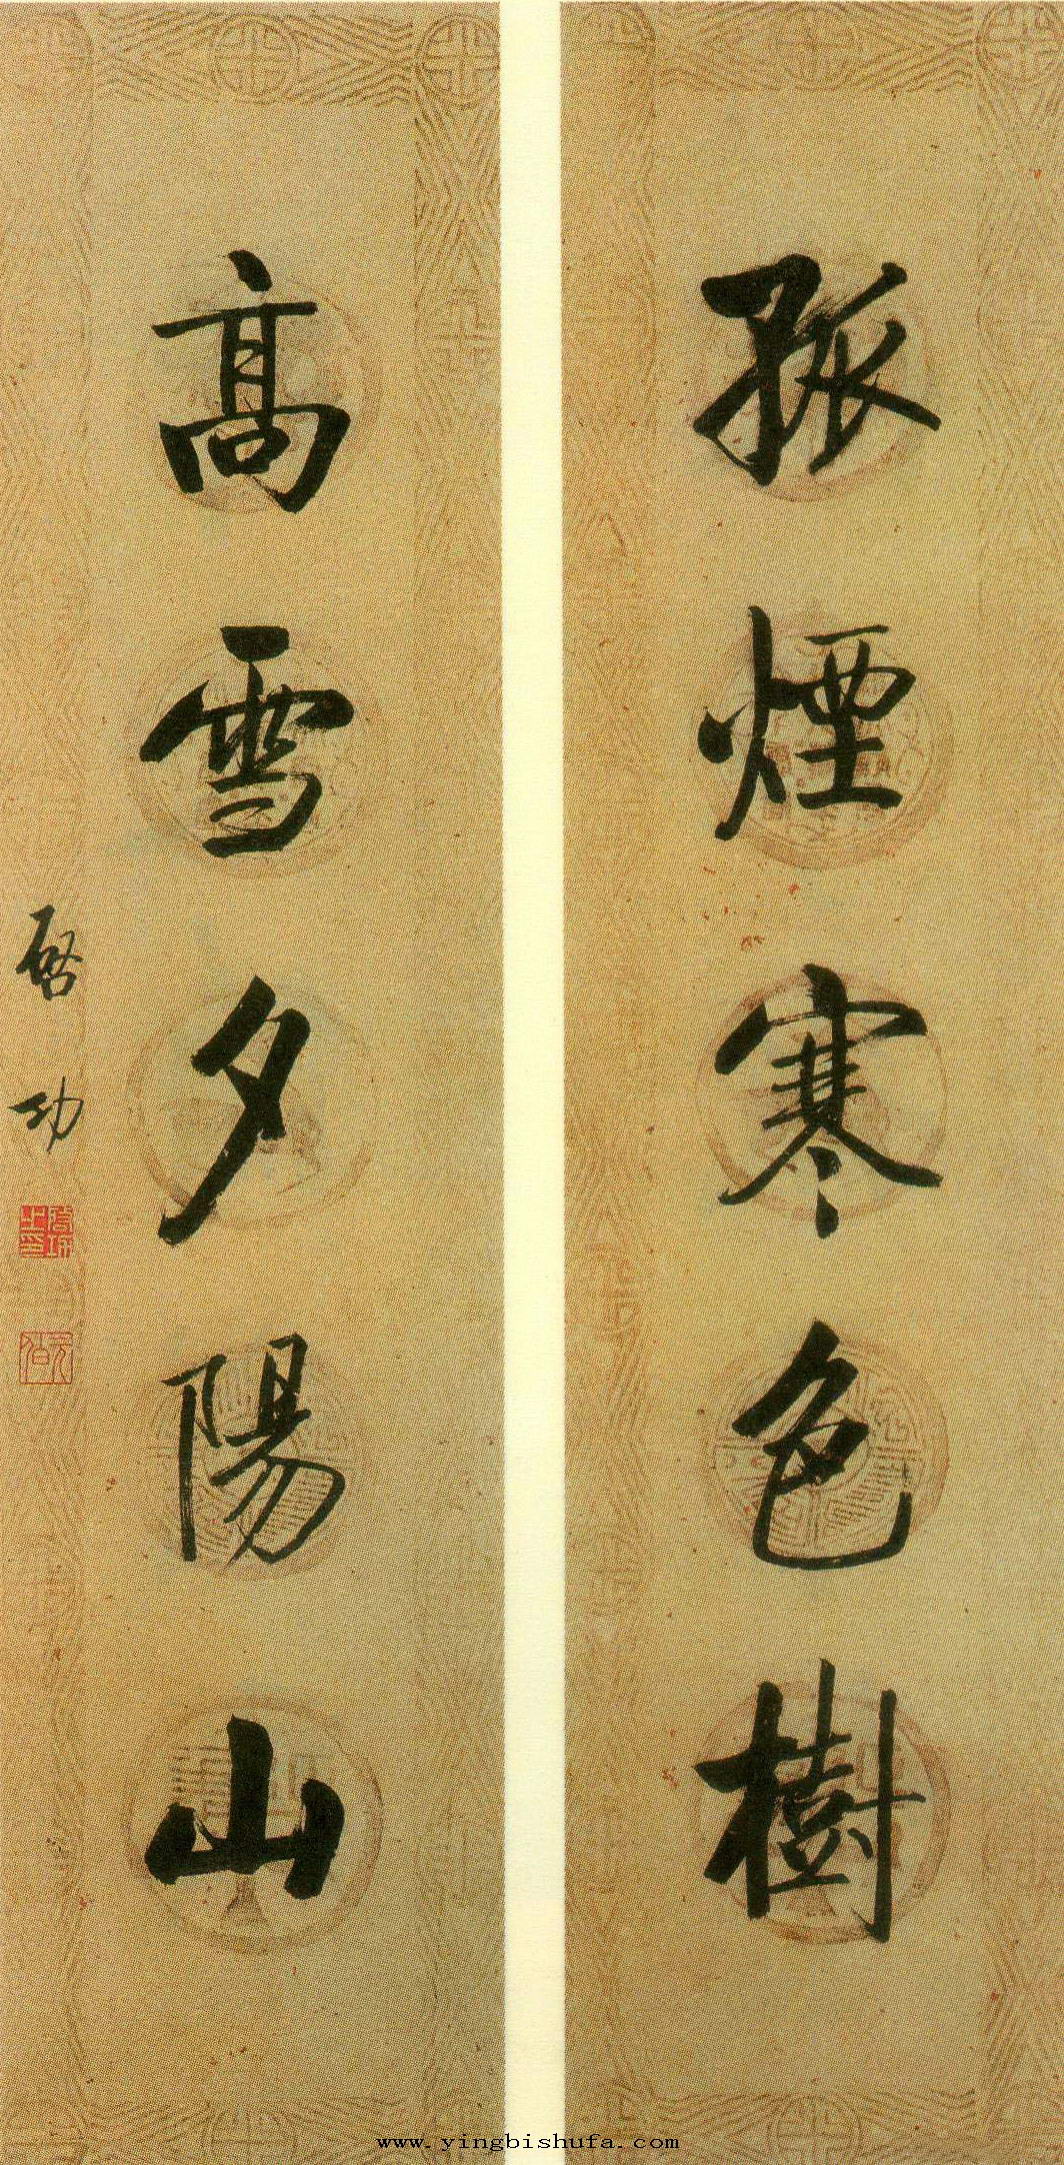 孤煙寒色樹
高雪夕陽山
啓功
啓功之印
元白
www.yingbishufa.com